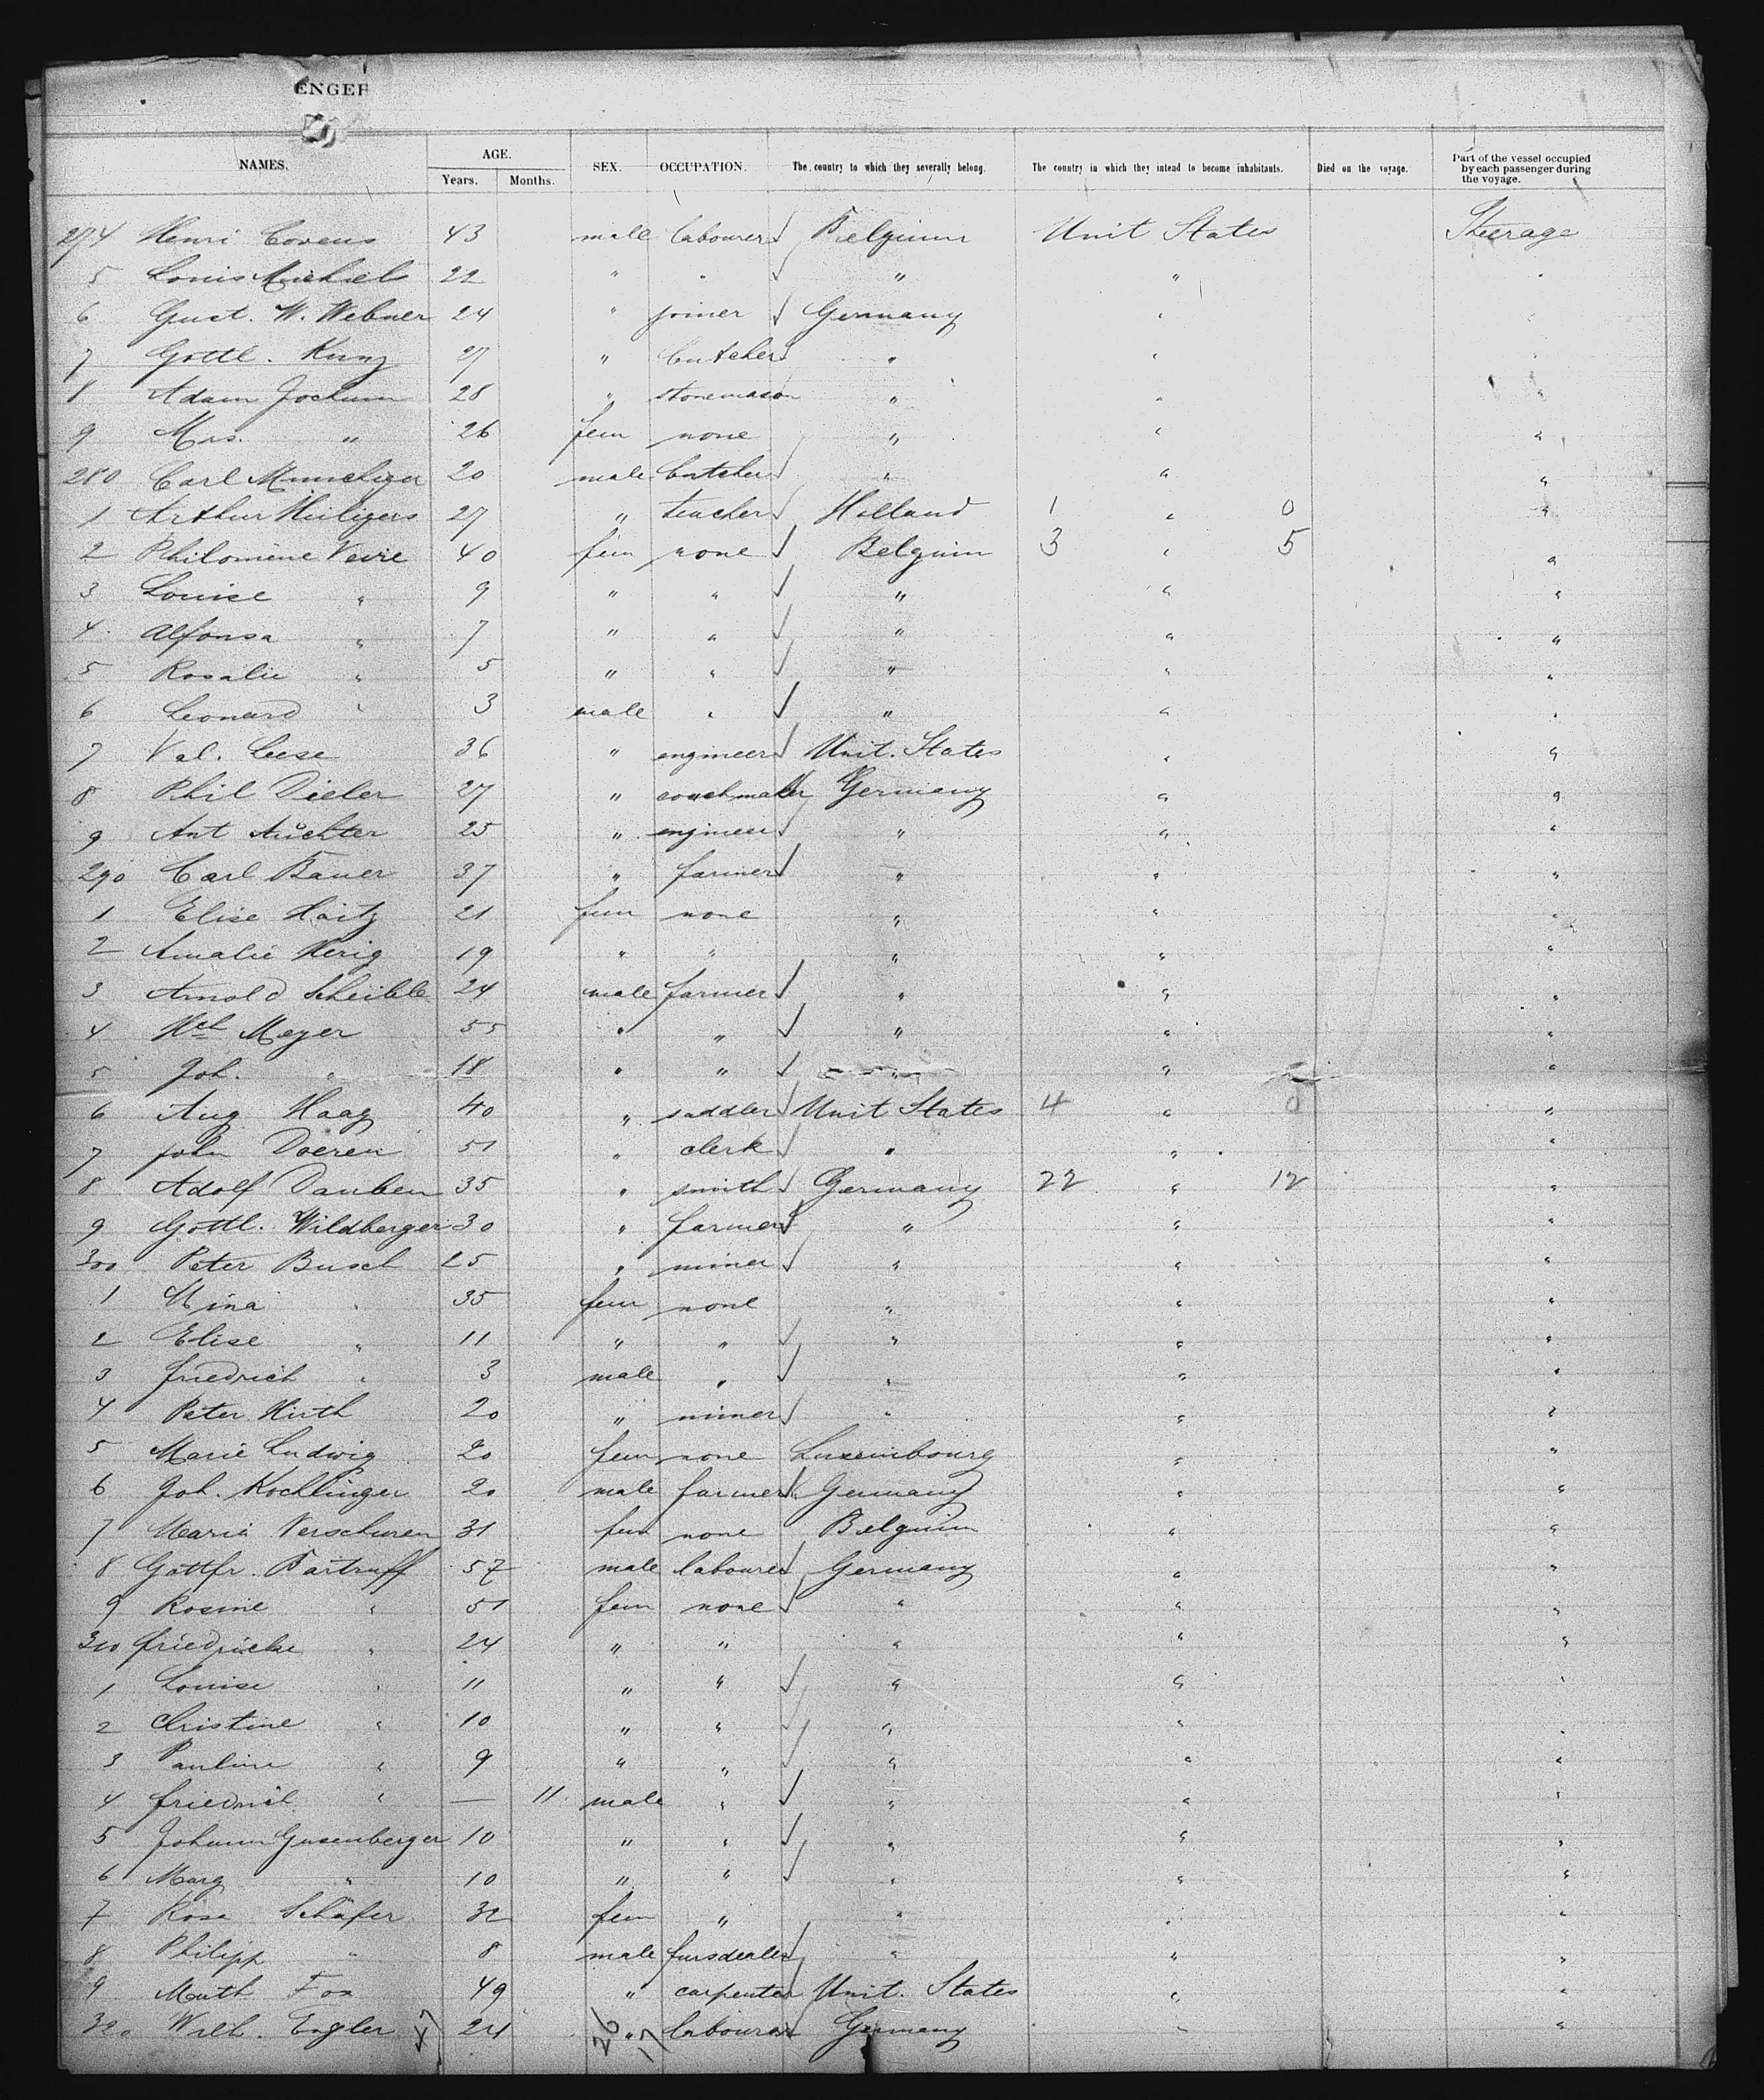 ENGER
NAMES. AGE. Years. Months. SEX. OCCUPATION. The country to which they severally belong. The country in which they intend to become inhabitants. Died on the voyage. Part of the vessel occupied by each passenger during the voyage.
274 Henri Covens 43 male labourer Belgium Unit States Steerage
5 Louis Michiels 22 " " " " "
6 Gust. W. Webner 24 " joiner Germany " "
7 Gottl. Kunz 27 " butcher " " "
8 Adam Jochum 28 " stonemason " " "
9 Mrs. " 26 fem none " " "
280 Carl 20 male butcher " " "
1 Arthur Heiligers 27 " teacher Holland 1 " 0 "
2 Philomène Veire 40 fem none Belgium 3 " 5 "
3 Louise " 9 " " " " "
4 Alfonsa " 7 " " " " "
5 Rosalie " 5 " " " " "
6 Leonard " 3 male " " " "
7 Val. Leese 36 " engineer Unit. States " "
8 Phil Dieler 27 " coachmaker Germany " "
9 Ant Auchter 25 " engineer " " "
290 Carl Bauer 37 " farmer " " "
1 Elise Haitz 21 fem none " " "
2 Amalie Herig 19 " " " " "
3 Arnold Scheible 24 male farmer " " "
4 Mel Meyer 55 " " " " "
5 Joh. " 18 " " " " "
6 Aug Haag 40 " saddler Unit States 4 " 0 "
7 John Doeren 51 " clerk " " "
8 Adolf Dauben 35 " smith Germany 22 " 12 "
9 Gottl. Wildberger 30 " farmer " " "
300 Peter Busch 25 " miner " " "
1 Mina " 35 fem none " " "
2 Elise " 11 " " " " "
3 friedrich " 3 male " " " "
4 Peter Hirth 20 " miner " " "
5 Marie Ludwig 20 fem none Luxembourg " "
6 Joh. Kochlinger 20 male farmer Germany " "
7 Maria Verschuren 31 fem none Belgium " "
8 Gottfr. Bartruff 57 male labourer Germany " "
9 Rosine " 51 fem none " " "
310 friedricke " 24 " " " " "
1 Louise " 11 " " " " "
2 Christine " 10 " " " " "
3 Pauline " 9 " " " " "
4 friedrich " — 11 male " " " "
5 Johann Gusenberger 10 " " " " "
6 Marg " 10 " " " " "
7 Rosa Schäfer 32 fem " " " "
8 Philipp " 8 male fursdealer " " "
9 Math Fox 49 " carpenter Unit. States " "
320 Wilh. Engler 24 " labourer Germany " "
47 26 17